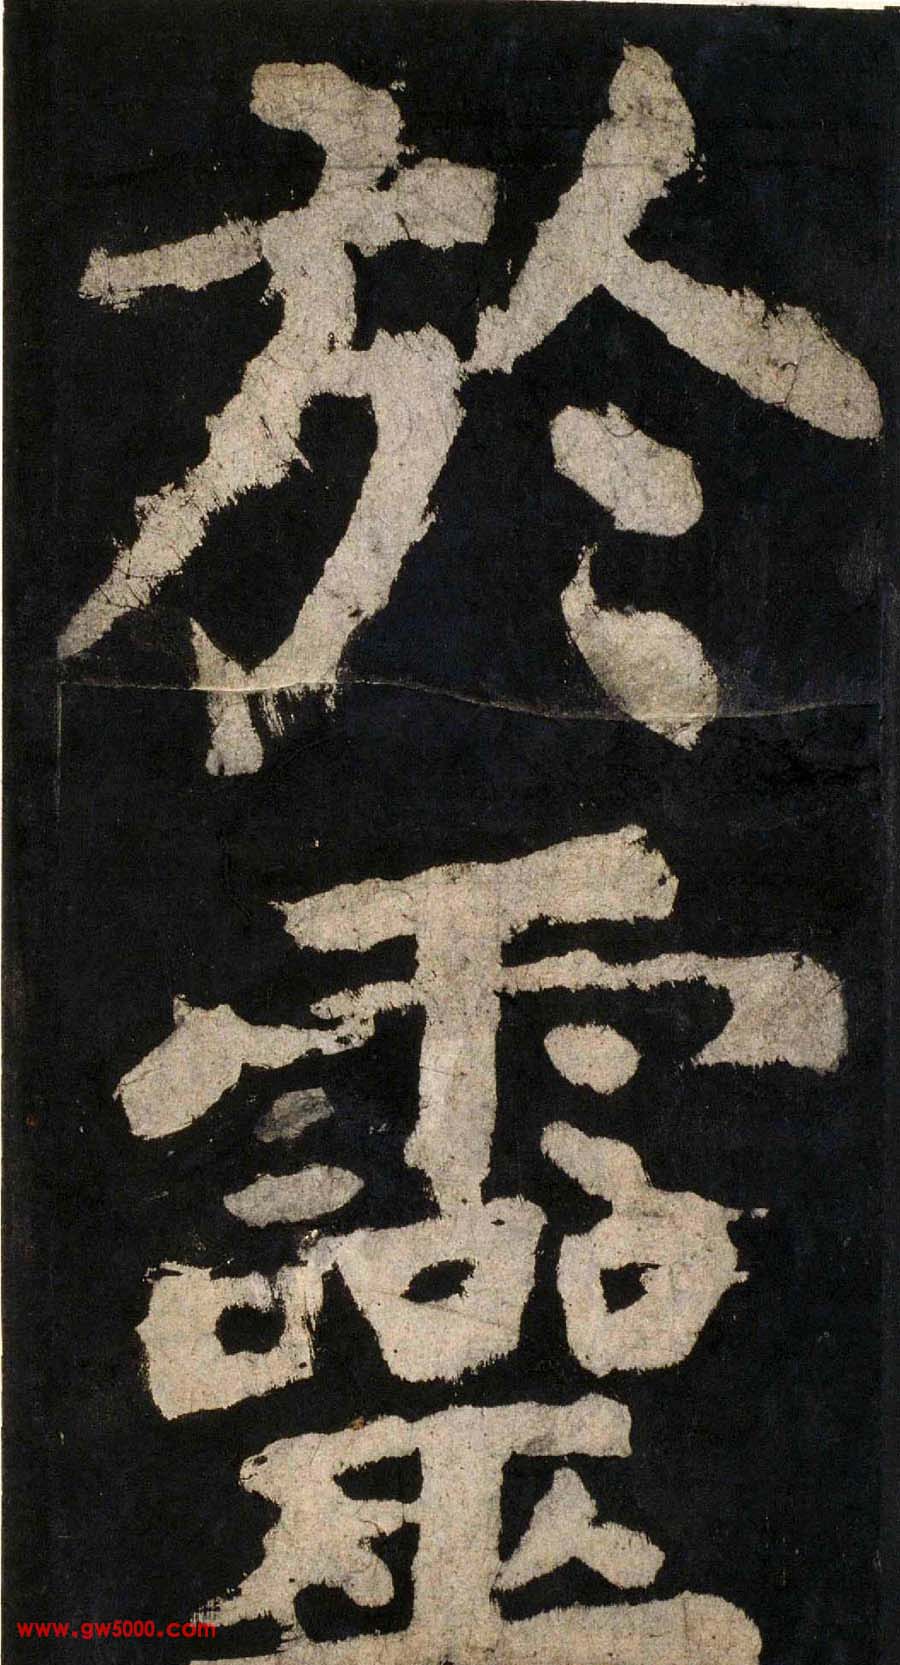 於
靈
www.gw5000.com